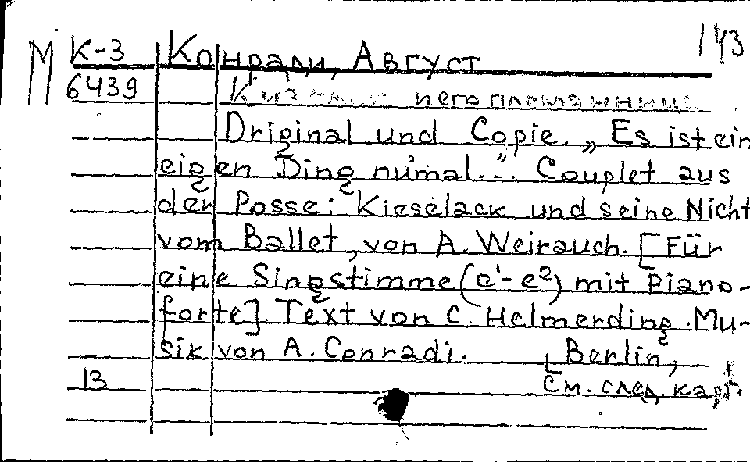 М К-3 Конради, Август 143
6439 К его племянница.
Original und Copie. „Es ist ein
eigen Ding numal...". Couplet aus
der Posse: Kieselack und seine Nicht
vom Ballet, von A. Weirauch. [Für
eine Singstimme (c¹-e²) mit Piano-
forte] Text von C. Helmerding. Mu-
sik von A. Conradi. [Berlin,
13 См. след. карт.